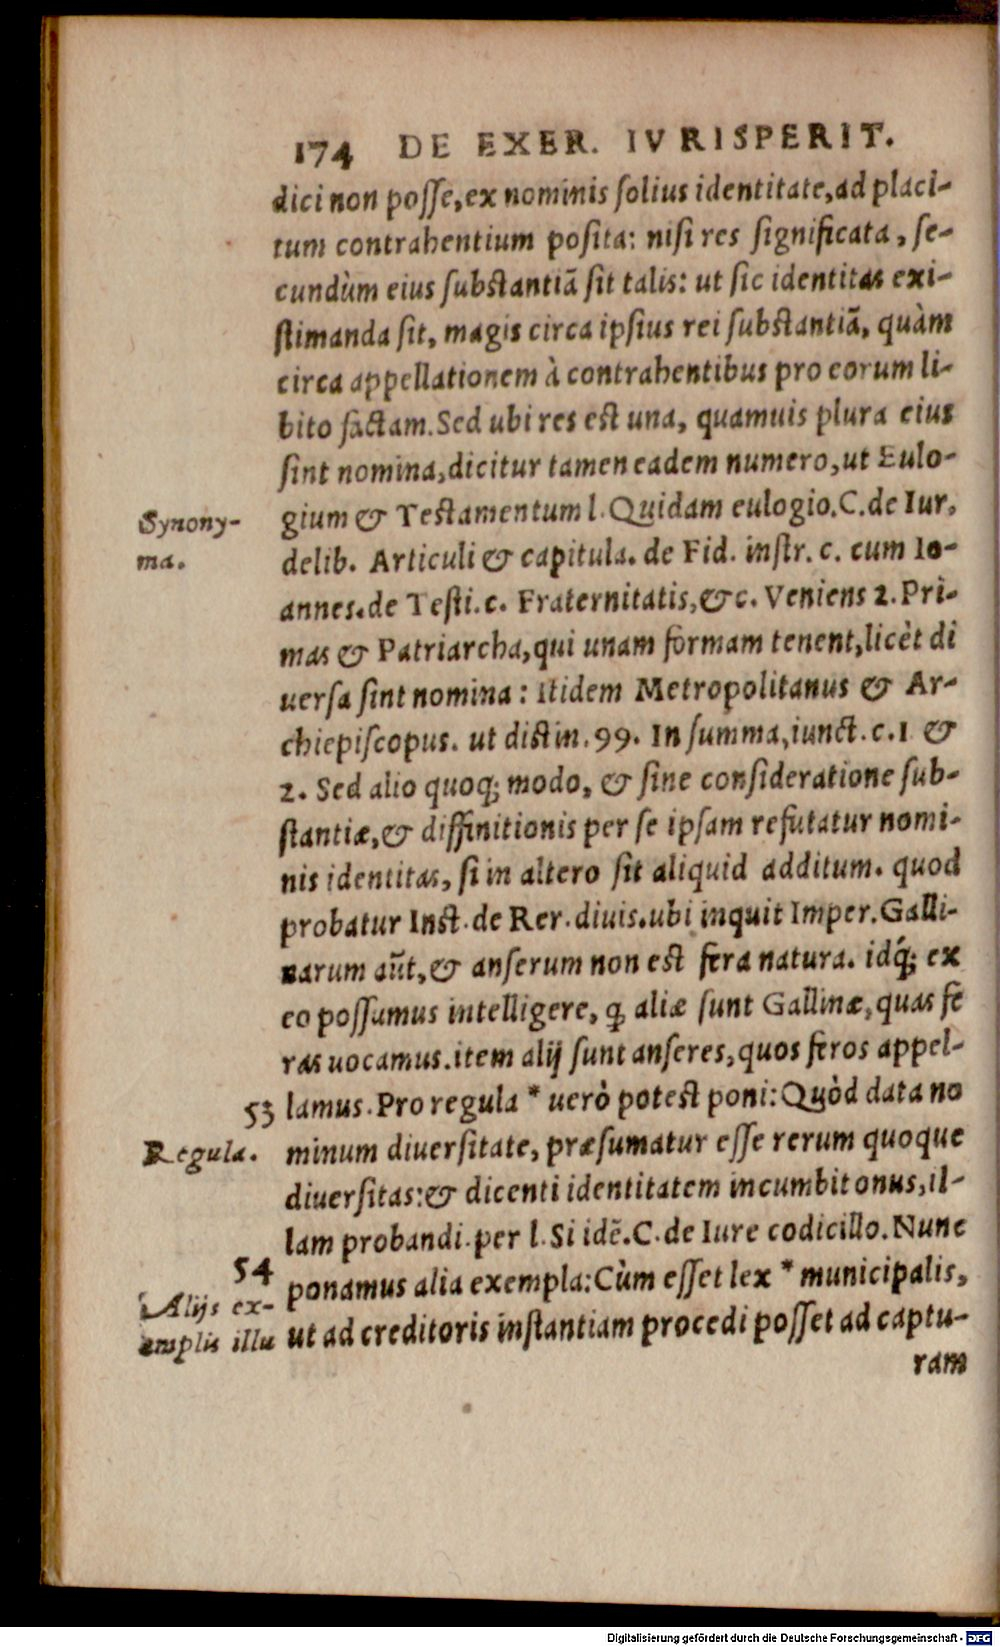 174 DE EXER. IVRISPERIT.
dici non posſe, ex nominis ſolius identitate, ad placi-
tum contrahentium poſita: niſi res ſignificata, ſe-
cundùm eius ſubſtantiã ſit talis: ut ſic identitas exi-
ſtimanda ſit, magis circa ipſius rei ſubſtantiã, quàm
circa appellationem à contrahentibus pro eorum li-
bito factam. Sed ubi res eſt una, quamuis plura eius
ſint nomina, dicitur tamen eadem numero, ut Eulo-
Synony-
ma.
gium & Teſtamentum l. Quidam eulogio. C. de Iur.
delib. Articuli & capitula. de Fid. inſtr. c. cum Io-
annes. de Teſti. c. Fraternitatis, &c. Veniens 2. Pri-
mas & Patriarcha, qui unam formam tenent, licèt di
uerſa ſint nomina: itidem Metropolitanus & Ar-
chiepiſcopus. ut diſtin. 99. In ſumma, iunct. c. 1 &
2. Sed alio quoq; modo, & ſine conſideratione ſub-
ſtantiæ, & diffinitionis per ſe ipſam refutatur nomi-
nis identitas, ſi in altero ſit aliquid additum. quod
probatur Inſt. de Rer. diuis. ubi inquit Imper. Galli-
narum aũt, & anſerum non eſt fera natura. idq́; ex
eo poſſumus intelligere, ꝙ aliæ ſunt Gallinæ, quas fe
ras uocamus. item alij ſunt anſeres, quos feros appel-
53 lamus. Pro regula * uerò poteſt poni: Quòd data no
Regula.
minum diuerſitate, præſumatur eſſe rerum quoque
diuerſitas: & dicenti identitatem incumbit onus, il-
lam probandi. per l. Si idẽ. C. de Iure codicillo. Nunc
54
ponamus alia exempla: Cùm eſſet lex * municipalis,
Alijs ex-
emplis illu
ut ad creditoris inſtantiam procedi poſſet ad captu-
ram
Digitalisierung gefördert durch die Deutsche Forschungsgemeinschaft - DFG